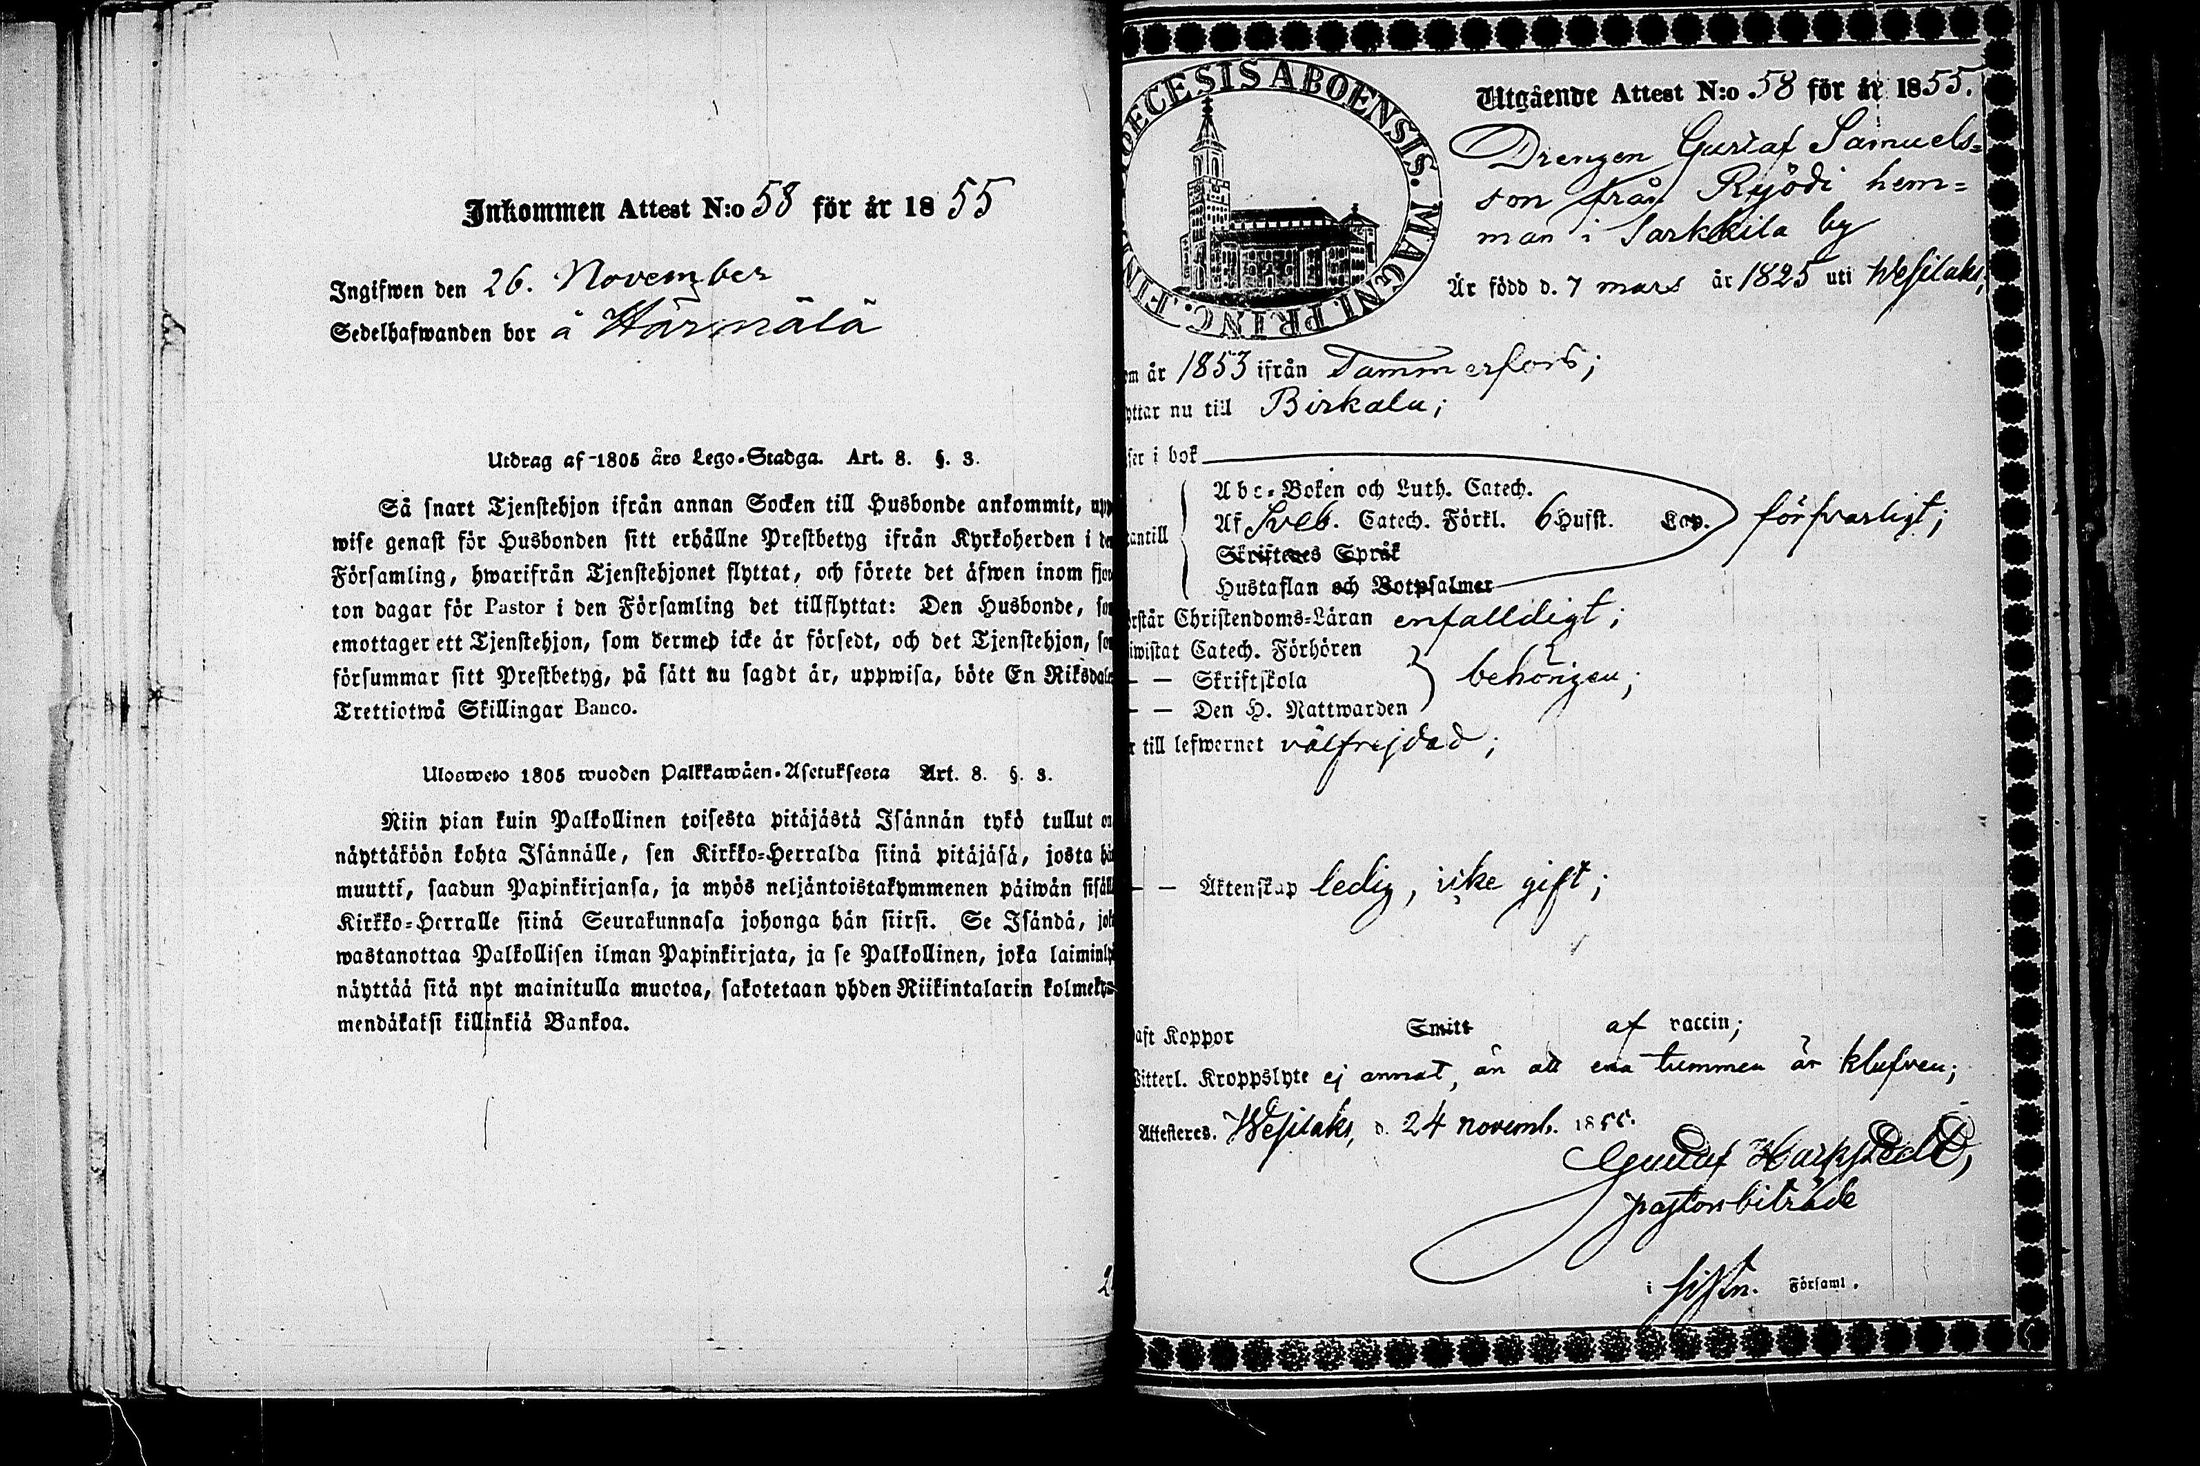 Inkommen Attest N:o 58 för år 1855
Ingifwen den 26. November
Sedelhafwanden bor å Härmälä
Utdrag af 1805 års Lego-Stadga. Art. 8. §. 3.
Så snart Tjenstehjon ifrån annan Socken till Husbonde ankommit, upp
wise genast för Husbonden sitt erhållne Prestbetyg ifrån Kyrkoherden i de
Församling, hwarifrån Tjenstehjonet flyttat, och förete det äfwen inom fjor
ton dagar för Pastor i den Församling det tillflyttat: Den Husbonde, so
emottager ett Tjenstehjon, som dermed icke är försedt, och det Tjenstehjon, so
försummar sitt Prestbetyg, på sätt nu sagdt är, uppwisa, böte En Riksdale
Trettiotwå Skillingar Banco.
Ulosweto 1805 wuoden Palkkawäen-Asetuksesta Art. 8. §. 3.
Niin pian kuin Palkollinen toisesta pitäjästä Isännän tykö tullut o
näyttäköön kohta Isännälle, sen Kirkko-Herralda siinä pitäjäsä, josta hä
muutti, saadun Papinkirjansa, ja myös neljäntoistakymmenen päiwän sisäll
Kirkko-Herralle siinä Seurakunnasa johonga hän siirsi. Se Isändä, jok
wastanottaa Palkollisen ilman Papinkirjata, ja se Palkollinen, joka laiminly
näyttää sitä nyt mainitulla muotoa, sakotetaan yhden Riikintalarin kolmeky-
mendäkaksi killinkiä Bankoa.
DIOECESIS ABOENSIS. MAGNI. PRINC. FIN
Utgående Attest N:o 58 för år 1855.
Drengen Gustaf Samuels-
son från Ryödi hem-
man i Sarkkila by
Är född d. 7 mars år 1825 uti Wesilaks,
om år 1853 ifrån Tammerfors;
yttar nu till Birkala;
ser i bok
Abc-Boken och Luth. Catech.
tantill Af Sveb. Catech. Förkl. 6 Husst. Cap. försvarligt;
Skriftenes Språk
Hustaflan och Botpsalmer
rstår Christendoms-Läran enfalldigt;
iwistat Catech. Förhören
– – Skriftskola behörigen;
– – Den H. Nattwarden
r till lefwernet välfrejdad;
– – Äktenskap ledig, icke gift;
aft Koppor Smitt af vaccin;
Witterl. Kroppslyte ej annat, än att ena tummen är klufven;
Attesteres. Wesilaks, d. 24 novemb. 1855.
Gustaf
pastorsbiträde
i Församl.